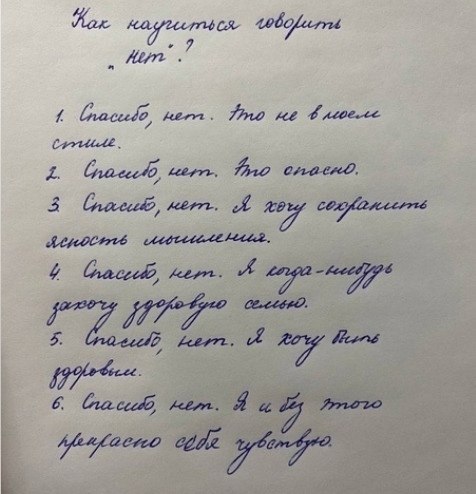 Как научиться говорить
„нет“?
1. Спасибо, нет. Это не в моем
стиле.
2. Спасибо, нет. Это опасно.
3. Спасибо, нет. Я хочу сохранить
ясность мышления.
4. Спасибо, нет. Я когда-нибудь
захочу здоровую семью.
5. Спасибо, нет. Я хочу быть
здоровым.
6. Спасибо, нет. Я и без этого
прекрасно себя чувствую.